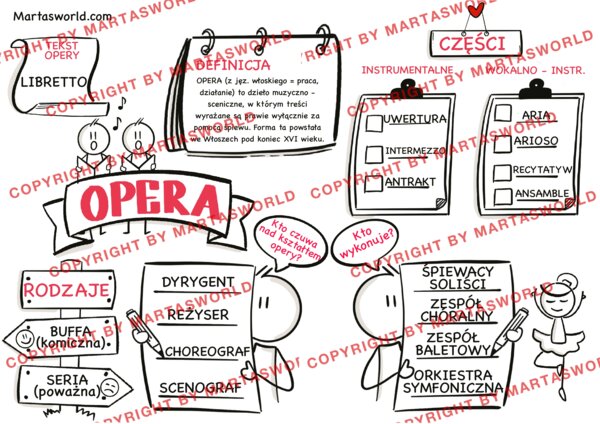 Martasworld.com
TEKST
OPERY
LIBRETTO
DEFINICJA
OPERA (z jęz. włoskiego = praca,
działanie) to dzieło muzyczno –
sceniczne, w którym treści
wyrażane są prawie wyłącznie za
pomocą śpiewu. Forma ta powstała
we Włoszech pod koniec XVI wieku.
CZĘŚCI
INSTRUMENTALNE
WOKALNO - INSTR.
UWERTURA
INTERMEZZO
ANTRAKT
ARIA
ARIOSO
RECYTATYW
ANSAMBLE
OPERA
RODZAJE
BUFFA
(komiczna)
SERIA
(poważna)
Kto czuwa
nad kształtem
opery?
DYRYGENT
REŻYSER
CHOREOGRAF
SCENOGRAF
Kto
wykonuje?
ŚPIEWACY
SOLIŚCI
ZESPÓŁ
CHÓRALNY
ZESPÓŁ
BALETOWY
ORKIESTRA
SYMFONICZNA
COPYRIGHT BY MARTASWORLD
COPYRIGHT BY MARTASWORLD
COPYRIGHT BY MARTASWORLD
COPYRIGHT BY MARTASWORLD
COPYRIGHT BY MARTASWORLD
COPYRIGHT BY MARTASWORLD
COPYRIGHT BY MARTASWORLD
COPYRIGHT BY MARTASWORLD
COPYRIGHT BY MARTASWORLD
COPYRIGHT BY MARTASWORLD